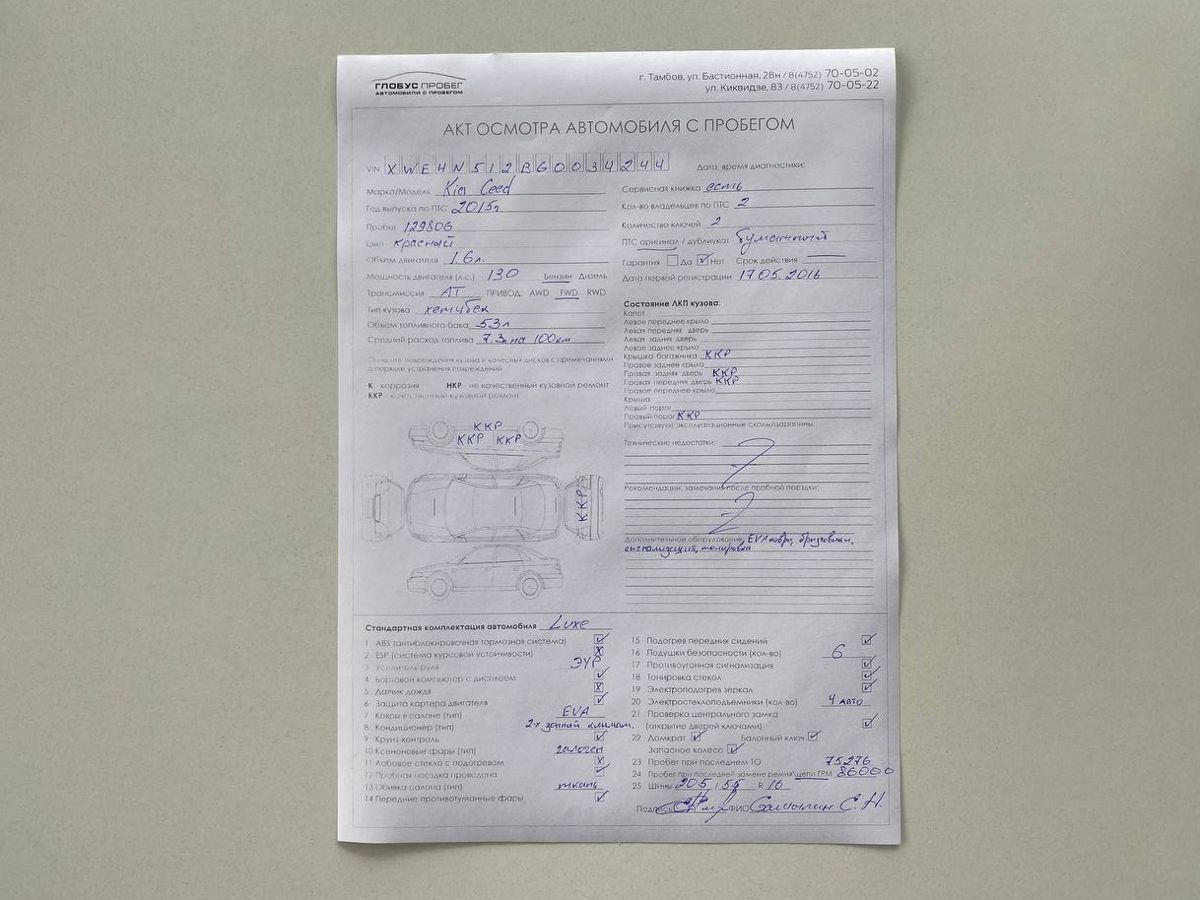 ГЛОБУС ПРОБЕГ
АВТОМОБИЛИ С ПРОБЕГОМ
г. Тамбов, ул. Бастионная, 28н / 8(4752) 70-05-02
ул. Киквидзе, 83 / 8(4752) 70-05-22
АКТ ОСМОТРА АВТОМОБИЛЯ С ПРОБЕГОМ
VIN XWEHN512BG0034244
Дата, время диагностики:
Марка/Модель Kia Ceed
Год выпуска по ПТС 2015г
Пробег 129806
Цвет красный
Объем двигателя 1.6л.
Мощность двигателя (л.с.) 130 Бензин Дизель
Трансмиссия АТ ПРИВОД: AWD FWD RWD
Тип кузова хетчбек
Объем топливного бака 53л
Средний расход топлива 7.3л на 100км
Сервисная книжка есть
Кол-во владельцев по ПТС 2
Количество ключей 2
ПТС оригинал / дубликат бумажный
Гарантия Да Нет Срок действия
Дата первой регистрации 17.05.2016
Внешние повреждения кузова и колесных дисков с примечаниями
о порядке устранения повреждений
К - коррозия НКР - не качественный кузовной ремонт
ККР - качественный кузовной ремонт
ККР
ККР ККР
ККР
Состояние ЛКП кузова:
Капот
Левое переднее крыло
Левая передняя дверь
Левая задняя дверь
Левое заднее крыло
Крышка багажника ККР
Правое заднее крыло
Правая задняя дверь ККР
Правая передняя дверь ККР
Правое переднее крыло
Крыша
Левый порог
Правый порог ККР
Присутствуют эксплуатационные сколы/царапины
Технические недостатки:
Рекомендации, замечания после пробной поездки:
Дополнительное оборудование: EVA ковры, брызговики,
сигнализация, тонировка
Стандартная комплектация автомобиля Luxe
1 ABS (антиблокировочная тормозная система)
2 ESP (система курсовой устойчивости)
3 Усилитель руля ЭУР
4 Бортовой компьютер с дисплеем
5 Датчик дождя
6 Защита картера двигателя
7 Ковры в салоне (тип) EVA
8 Кондиционер (тип) 2-х зонный климат.
9 Круиз контроль
10 Ксеноновые фары (тип) галоген
11 Лобовое стекло с подогревом
12 Пробная поездка проведена
13 Обивка салона (тип) ткань
14 Передние противотуманные фары
15 Подогрев передних сидений
16 Подушки безопасности (кол-во) 6
17 Противоугонная сигнализация
18 Тонировка стекол
19 Электроподогрев зеркал
20 Электростеклоподъемники (кол-во) 4 авто
21 Проверка центрального замка
(открытие дверей ключами)
22 Домкрат Балонный ключ
Запасное колесо
23 Пробег при последнем ТО 75276
24 Пробег при последней замене ремня\цепи ГРМ 86000
25 Шины 205 / 55 R 16
Подпись ФИО С.Н.